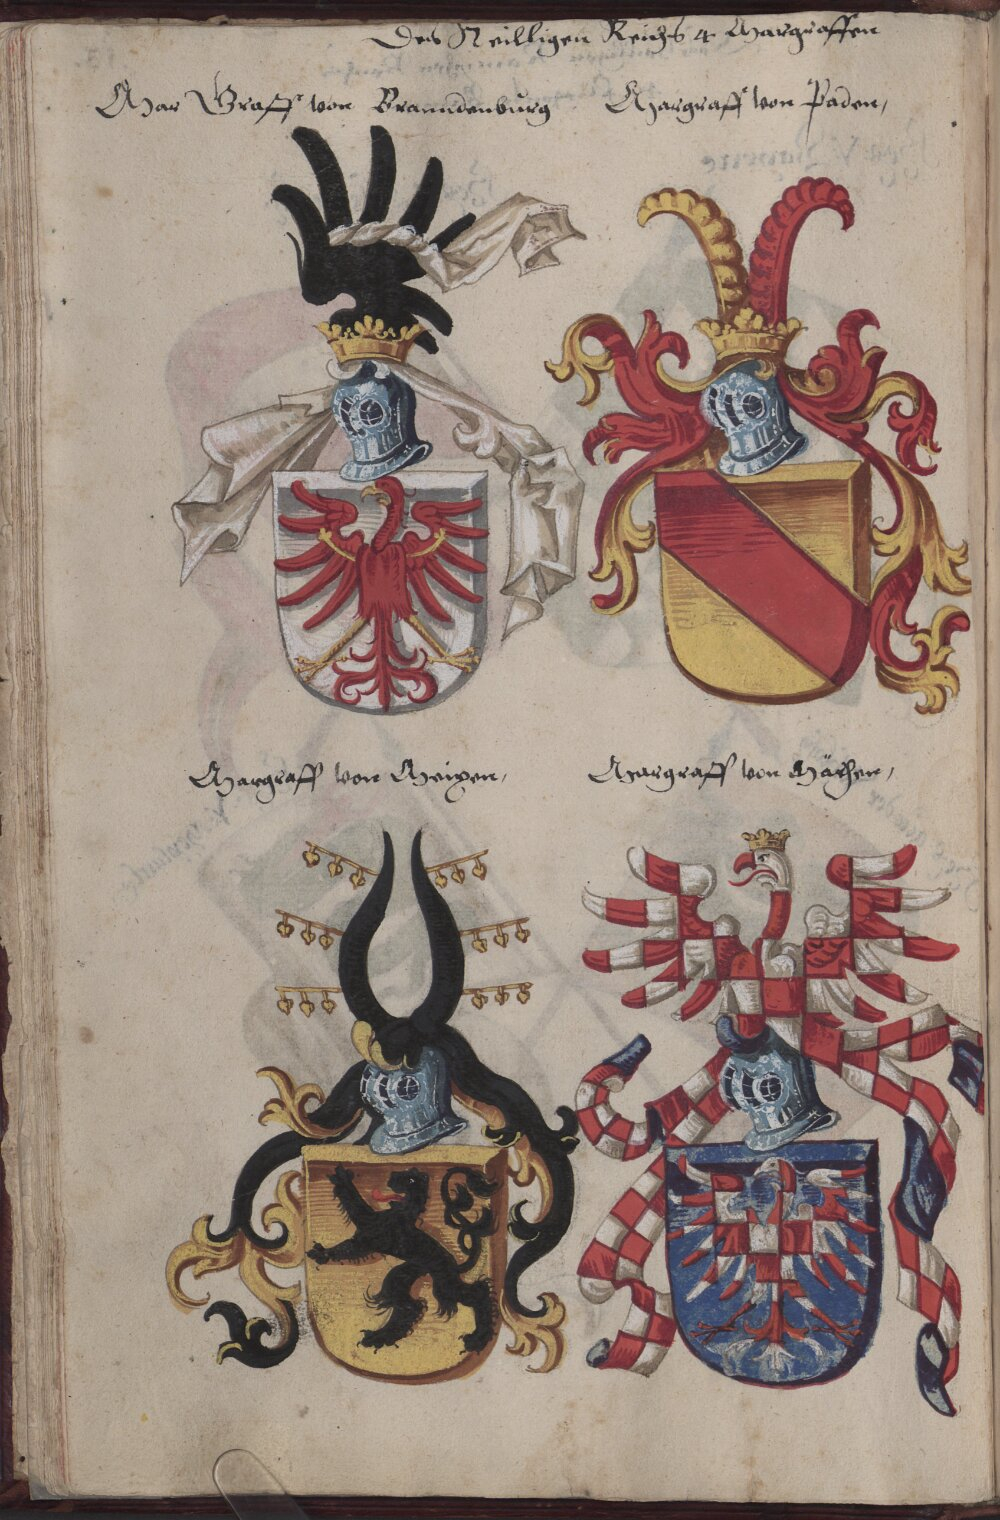 Des Heilligen Reichs 4 Margraffen
Mar Graff von Branndenburg
Margraff von Paden,
Margraff von Meixen,
Margraff von Märhen,